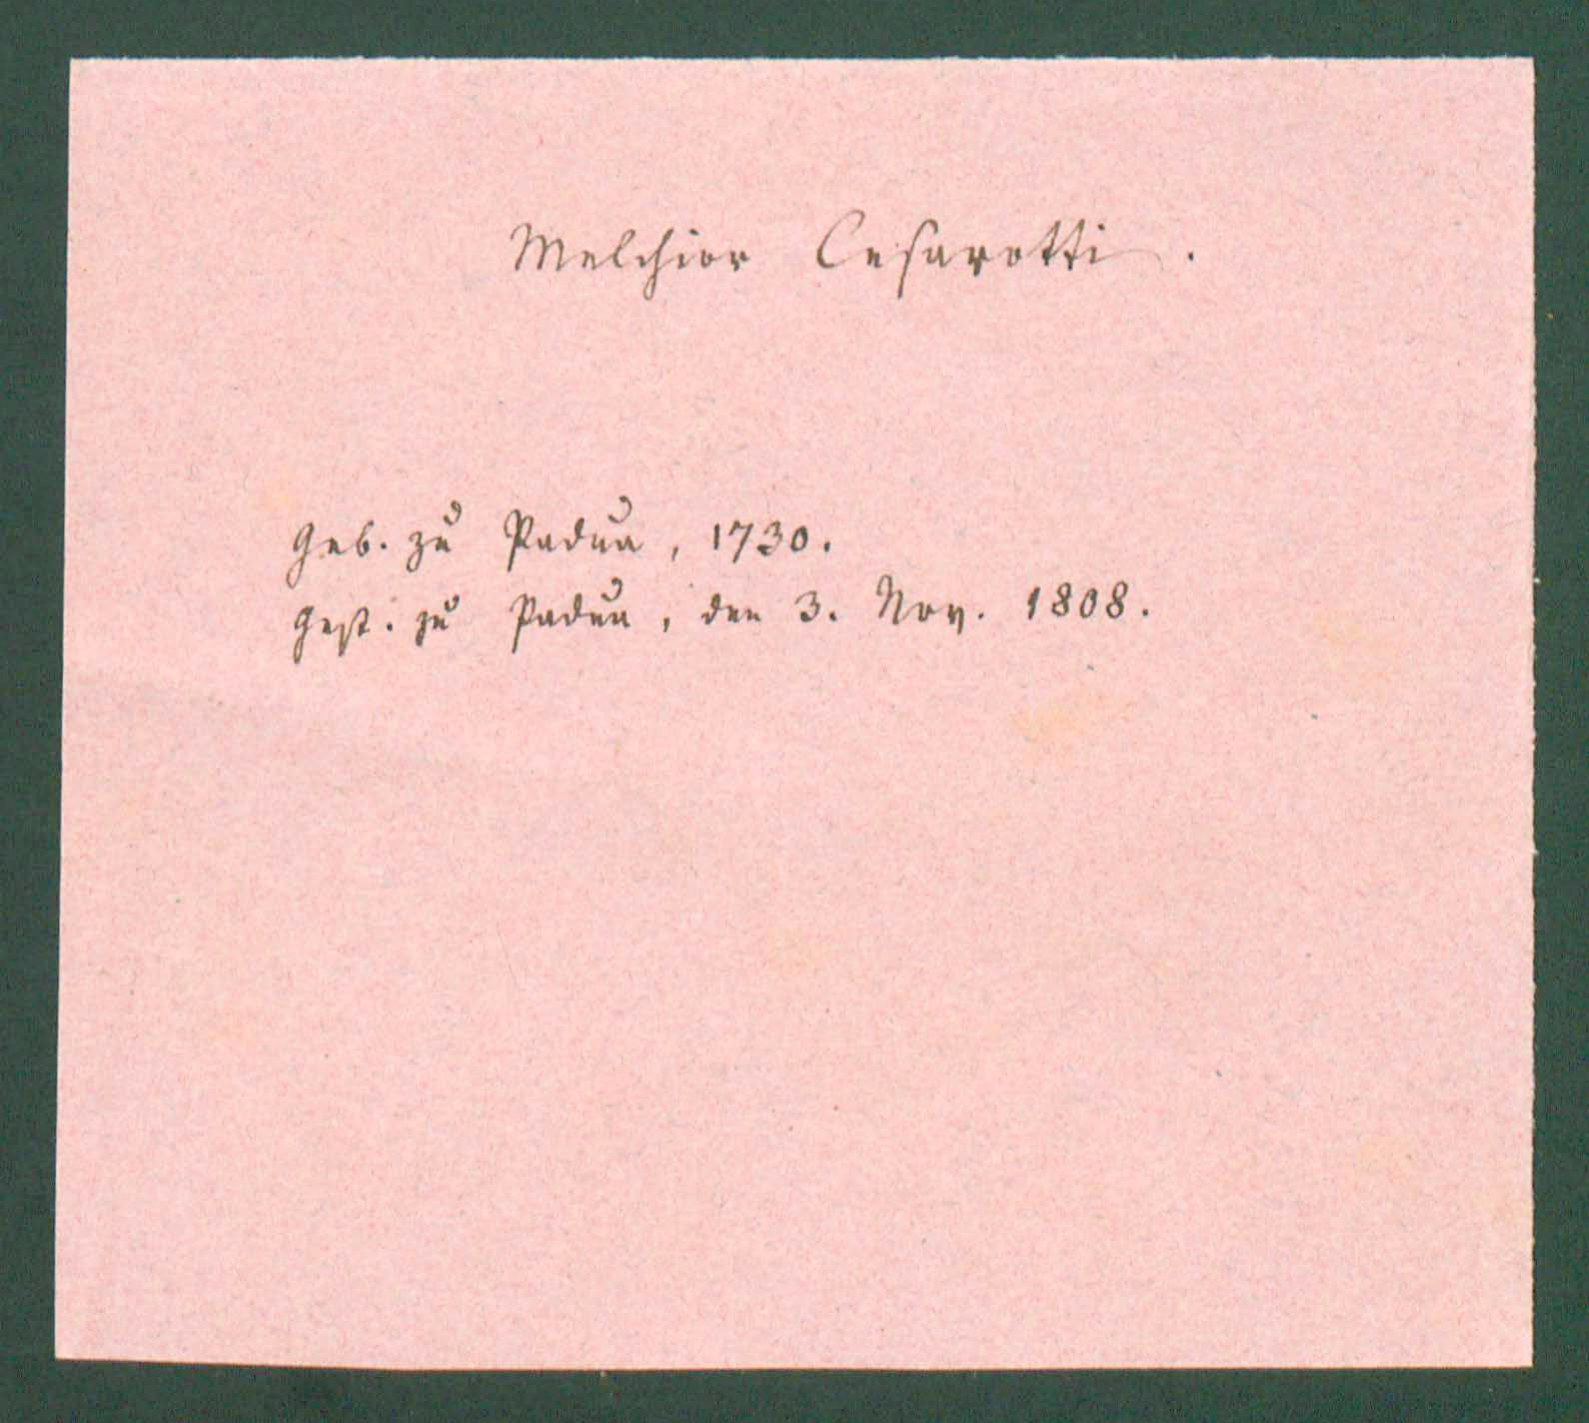 Melchior Cesarotti.
Geb. zu Padua, 1730.
Gest. zu Padua, den 3. Nov. 1808.